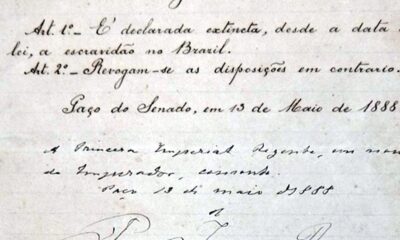 Art. 1º.- É declarada extincta, desde a data
lei, a escravidão no Brazil.
Art. 2º.- Revogam-se as disposições em contrario.
Paço do Senado, em 13 de Maio de 1888
A Princesa Imperial Regente, em nome
do Imperador, consente.
Paço 13 de maio 1888